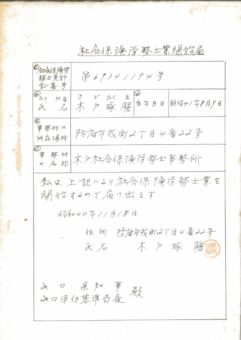 社会保険労務士業開始届
社会保険労務士免許証番号
第6934119号
ふりがな
氏名
きどたくま
木戸琢磨
生年月日
事務所の所在の場所
防府市戎町2丁目4番22号
事務所の名称
木戸社会保険労務士事務所
私は上記により社会保険労務士業を
開始するので届け出ます
昭和44年11月18日
住所 防府市戎町2丁目4番22号
氏名 木戸琢磨
山口県知事
山口労働基準局長 殿